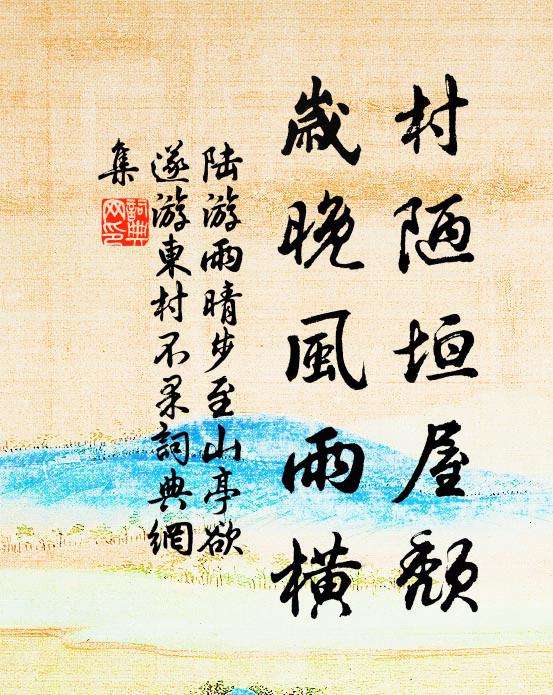 村陋垣屋頹
歲晚風雨橫
陆游雨晴步至山亭欲
遂游東村不果詞典網
集
詞典
网印